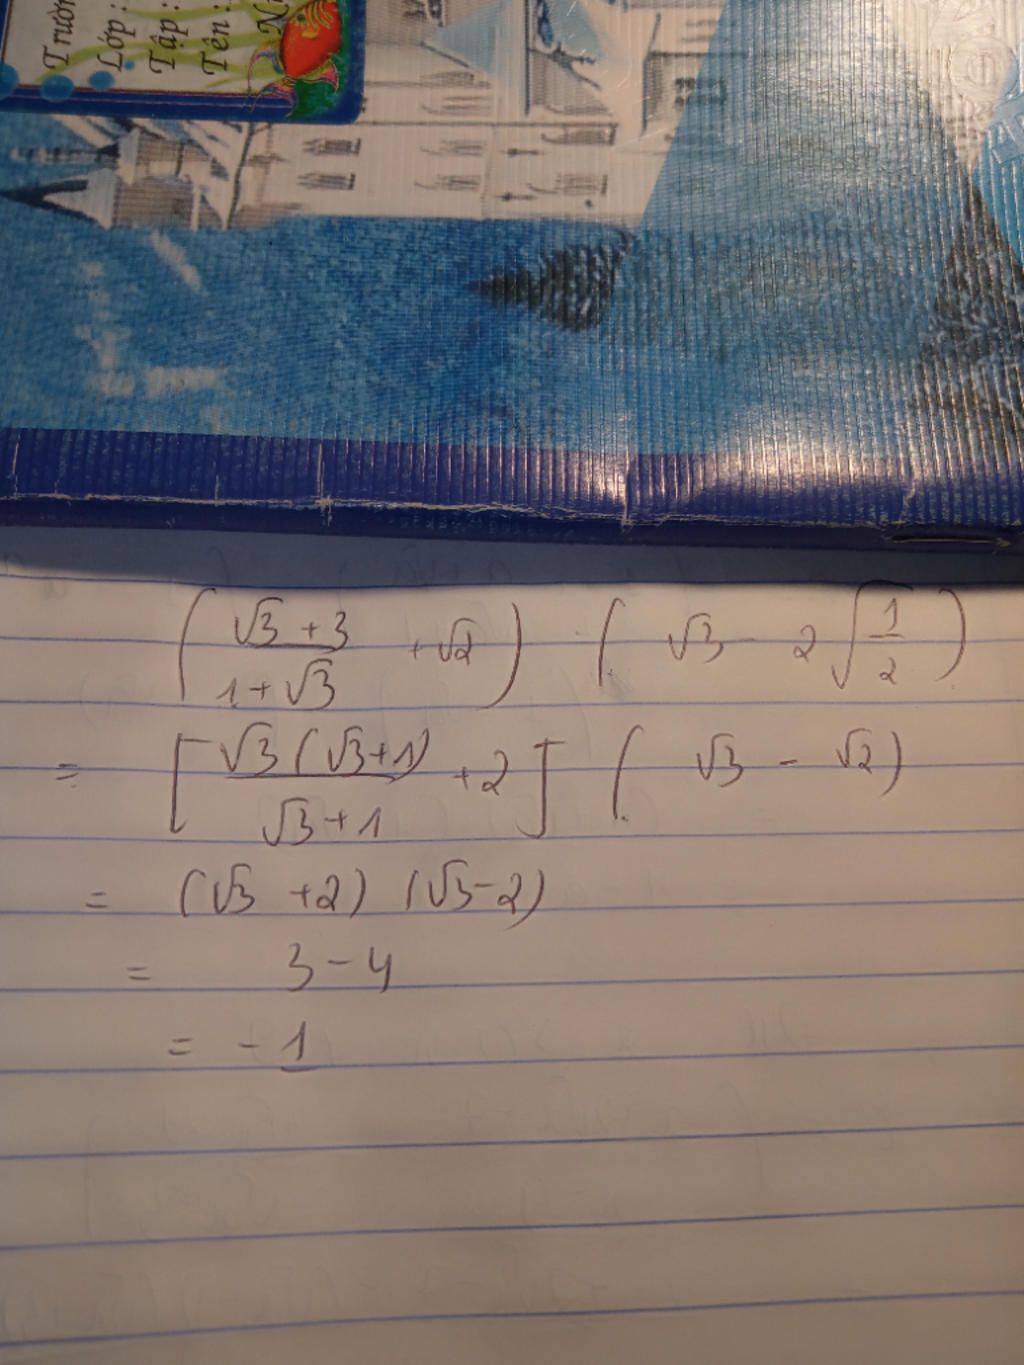 Trườn
Lớp :
Tập :
Tên :
Ni
( (√3 + 3)/(1 + √3) + √2 ) · ( √3 - 2√(1/2) )
= [ (√3 (√3 + 1))/(√3 + 1) + 2 ] ( √3 - √2 )
= (√3 + 2) (√3 - 2)
= 3 - 4
= - 1